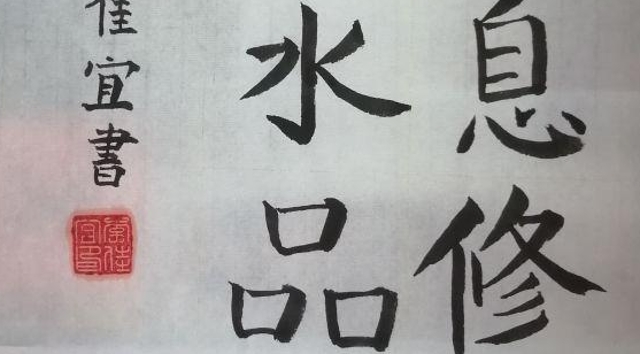 息修
水品
佳宜書